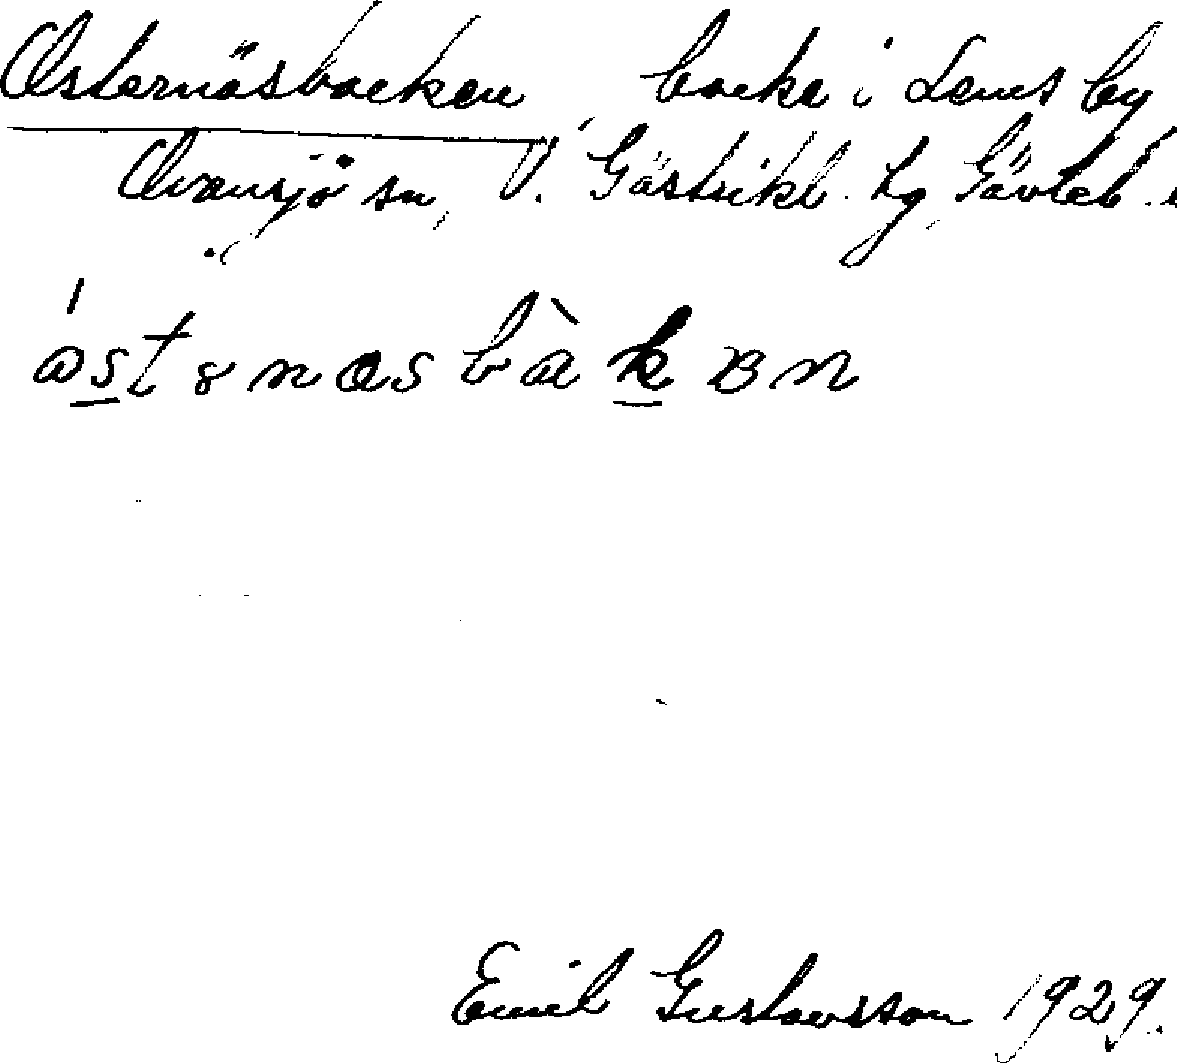 Östernäsbacken, backe i Lenes by
Ovansjö sn, V. Gästrikl. hg, Gävleb.
Emil Gustavsson 1929.